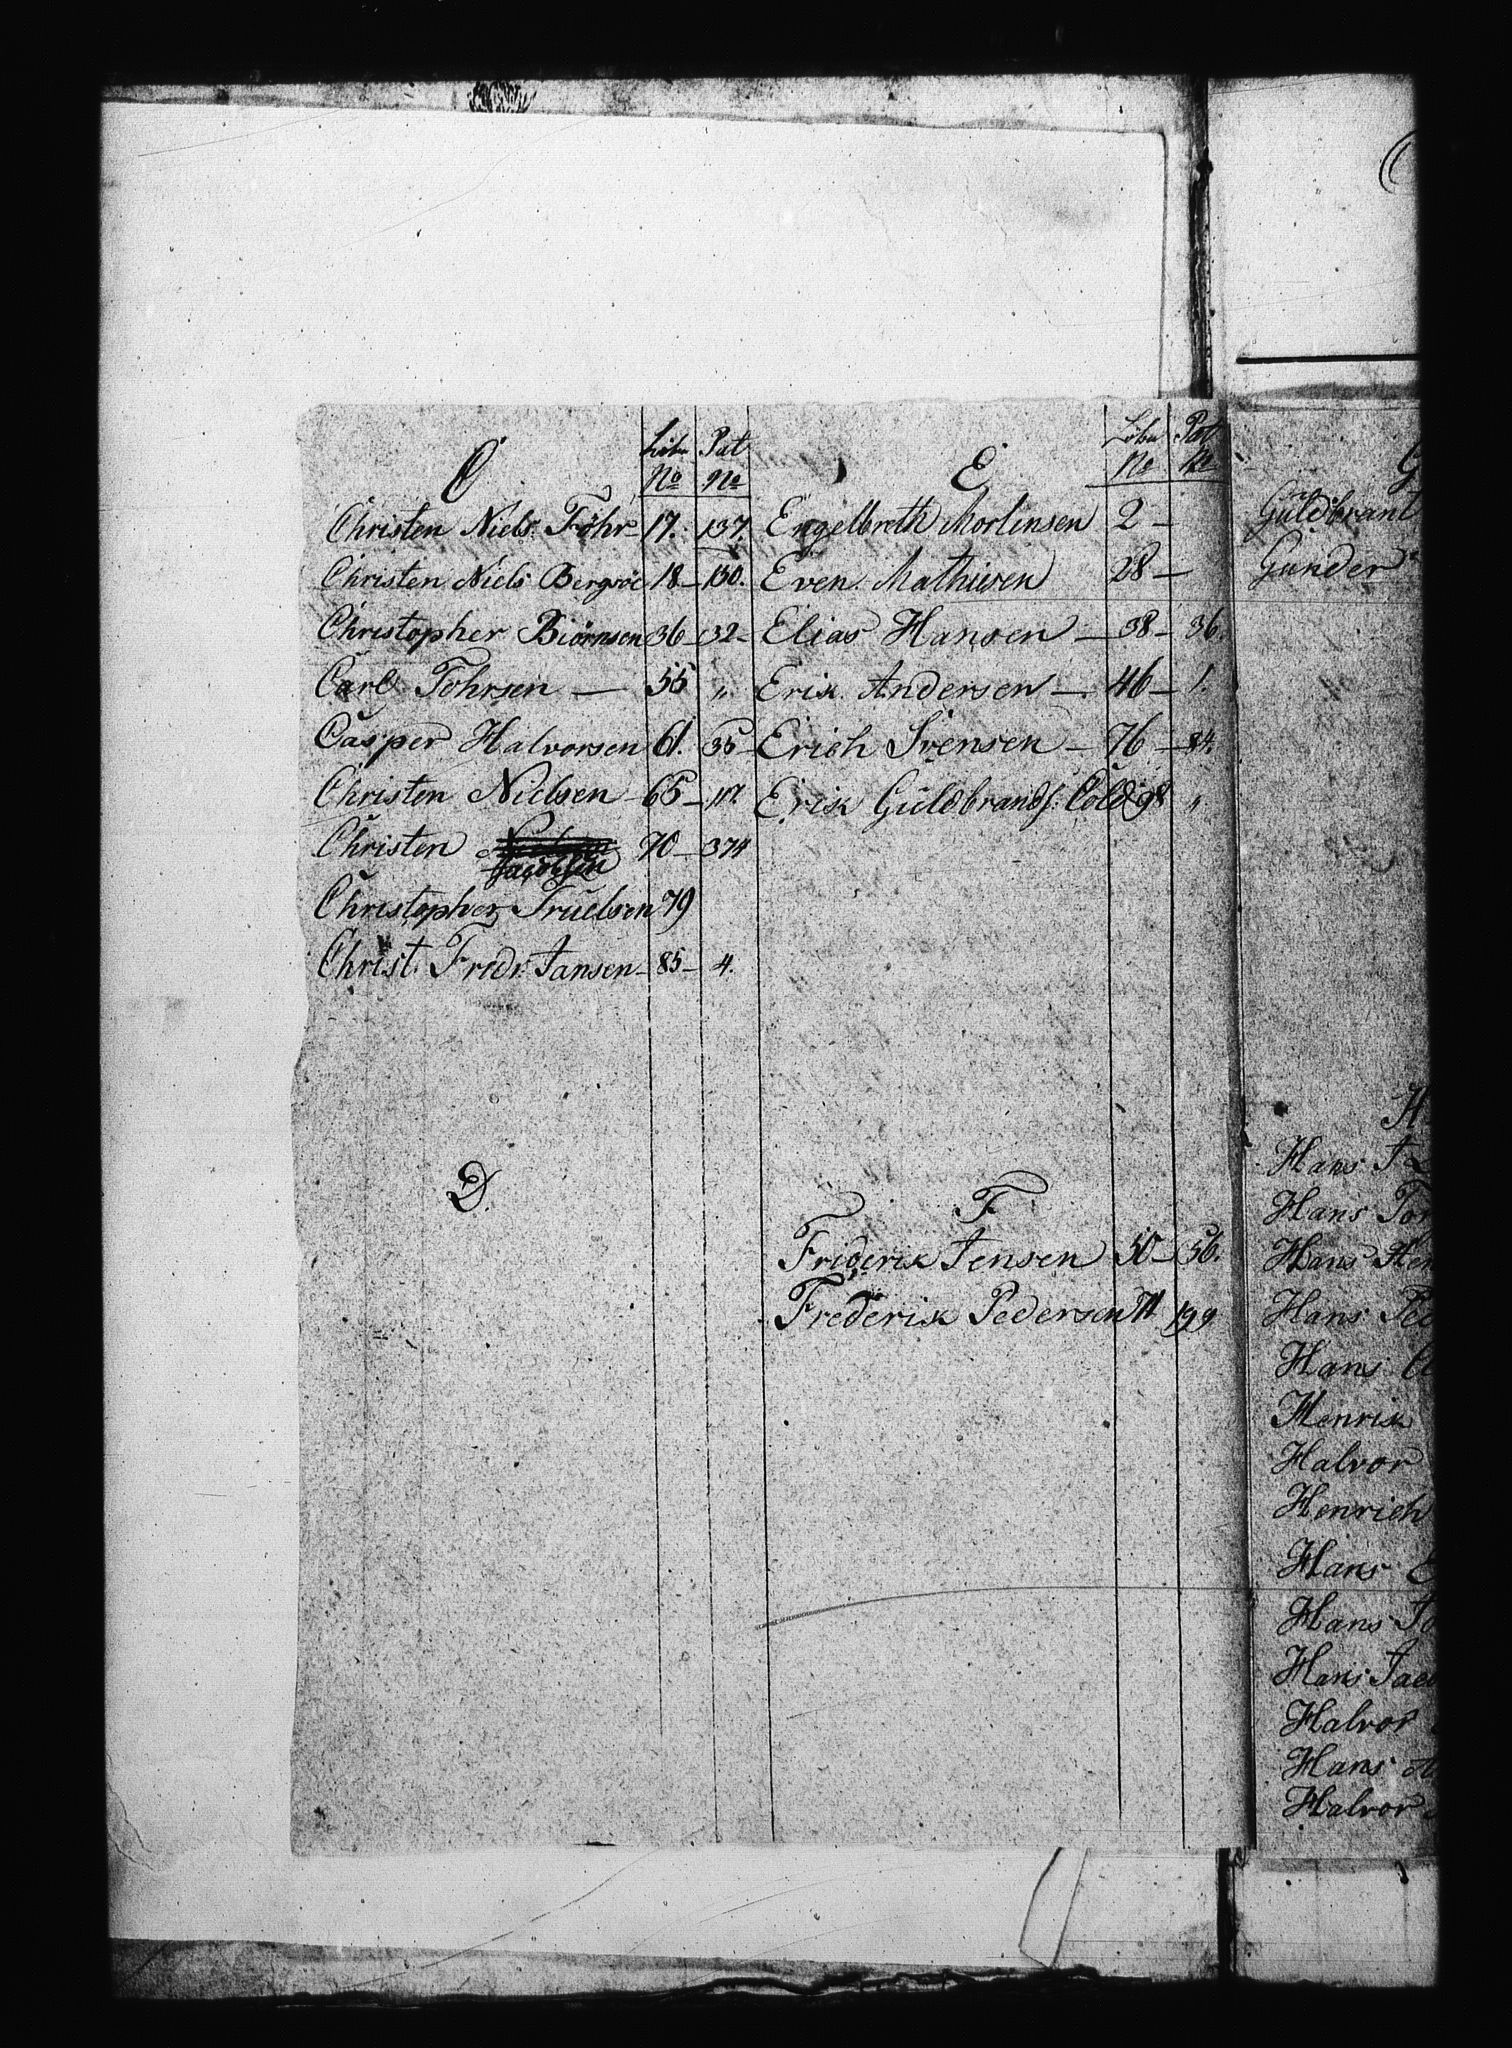 C
Løbe No
Pat No
Christen Niels. Föhr 17. 137.
Christen Niels Bergsöe 18 130.
Christopher Biörnsen 36 132
Carl Tohrsen 55 "
Casper Halvorsen 61. 35
Christen Nielsen 65 117.
Christen Jacobsen 70 374
Christopher Truelsen 79
Christ. Fredr. Jansen 85 4.
D.
E
Løbe No
Pat No
Engelbreth Mortensen 2
Even Mathiesen 28
Elias Hansen 38 36.
Erik Andersen 46 1.
Erich Svensen 76 84.
Erik Guldbrands. Cold 98 "
F
Friderik Jensen 50 56.
Frederik Pedersen 71 199
G
Guldbrant
Gunder
H
Hans
Hans Tor
Hans Hen
Hans Ped
Hans
Henrik
Halvor
Henrich
Hans
Hans Jo
Hans Jac
Halvor
Hans
Halvor